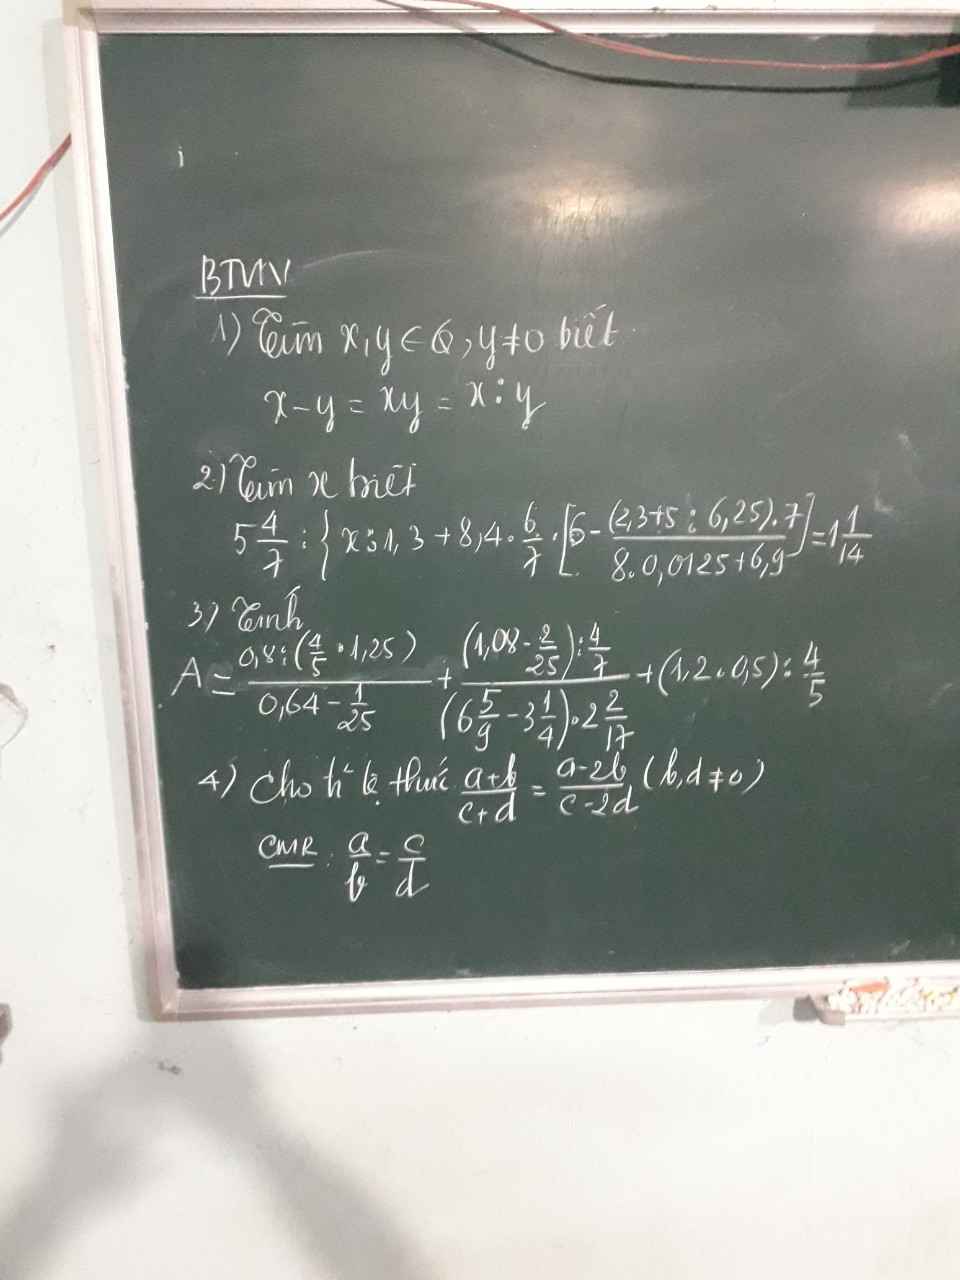 BTVN
1) Tìm x, y ∈ Q, y ≠ 0 biết
x - y = xy = x : y
2) Tìm x biết
5 4/7 : { x : 1,3 + 8,4 . 6/7 . [ 6 - (2,3 + 5 : 6,25) . 7 / 8 . 0,0125 + 6,9 ] = 1 1/14
3) Tính
A = 0,8 : (4/5 . 1,25) / 0,64 - 1/25 + (1,08 - 2/25) : 4/7 / (6 5/9 - 3 1/4) . 2 2/17 + (1,2 . 0,5) : 4/5
4) Cho tỉ lệ thức a+b/c+d = a-2b/c-2d (b, d ≠ 0)
CMR : a/b = c/d